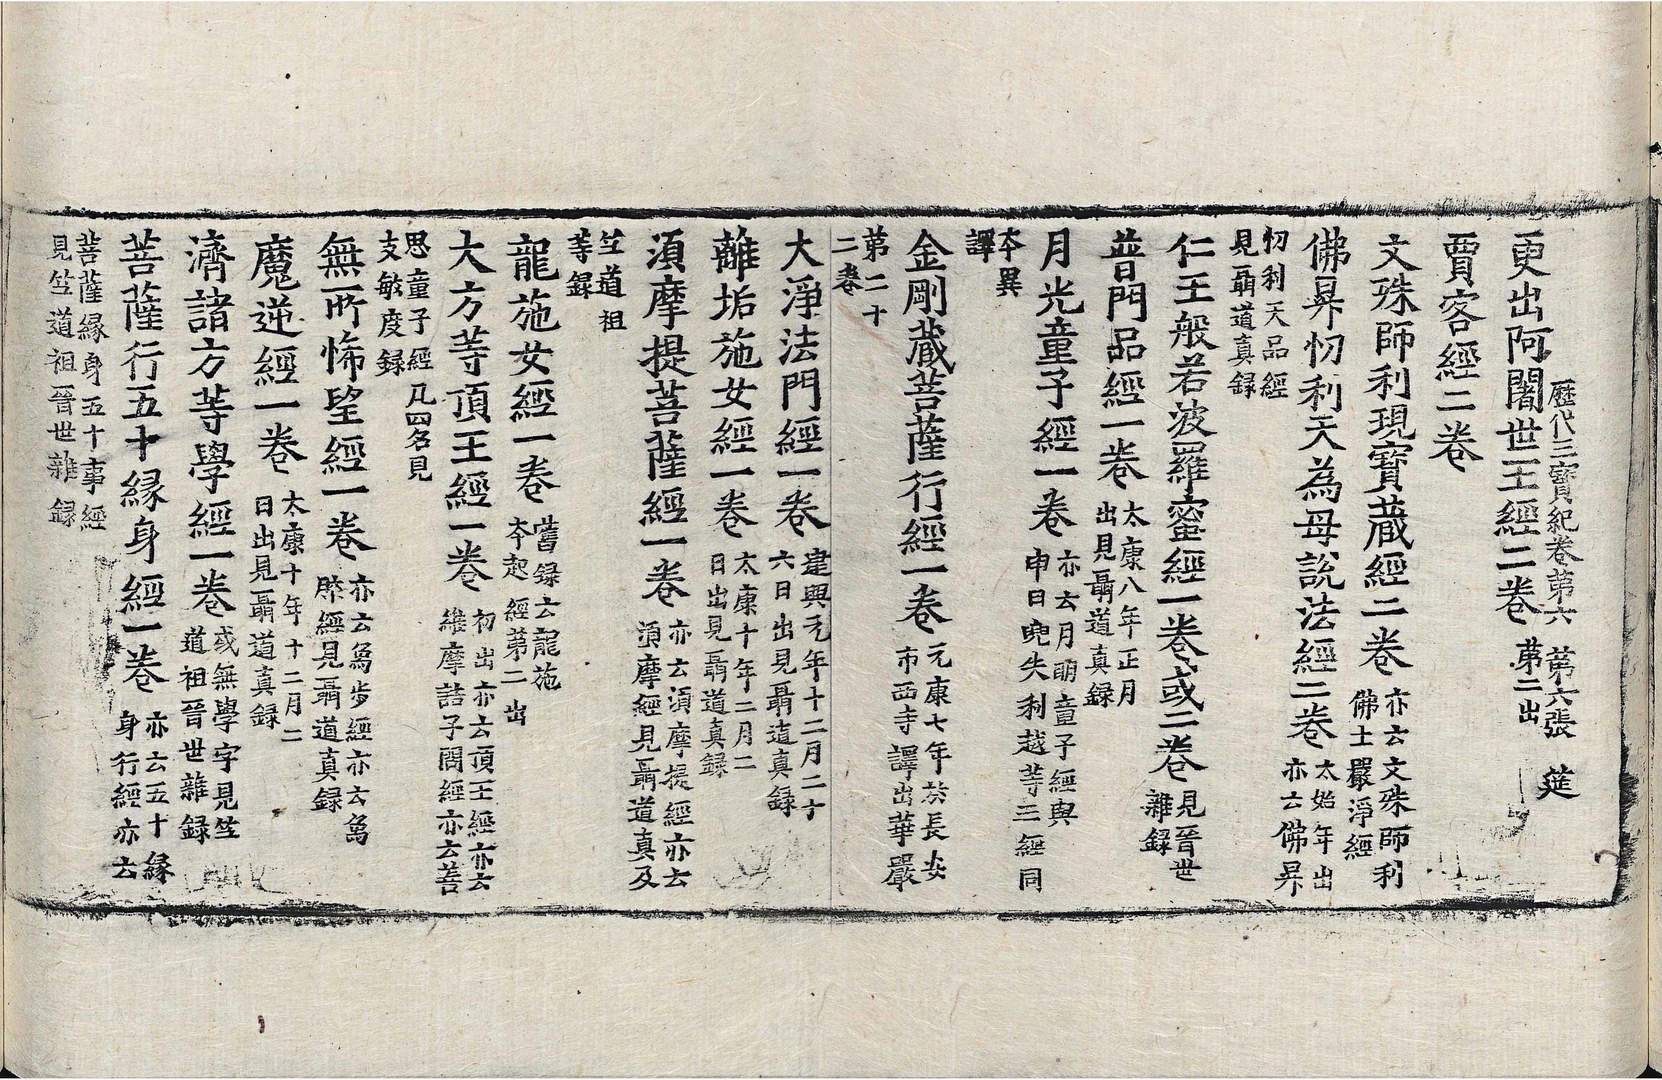 歷代三寶紀卷第六　第六張　筵
更出阿闍世王經二卷第二出
賈客經二卷
文殊師利現寶藏經二卷亦云文殊師利
佛土嚴淨經太始年出
佛昇忉利天為母說法經二卷亦云佛昇
忉利天品經
見聶道真錄
仁王般若波羅蜜經一卷或二卷見晉世
雜錄
普門品經一卷太康八年正月
出見聶道真錄
月光童子經一卷亦云月明童子經與
申日兜失利越等三經同
本異
譯
金剛藏菩薩行經一卷元康七年於長安
市西寺譯出華嚴
第二十
二卷
大淨法門經一卷建興元年十二月二十
六日出見聶道真錄
離垢施女經一卷太康十年二月二
日出見聶道真錄
須摩提菩薩經一卷亦云須摩提經亦云
須摩經見聶道真及
竺道祖
等錄
龍施女經一卷舊錄云龍施
本起經第二出
大方等頂王經一卷初出亦云頂王經亦云
維摩詰子問經亦云善
思童子經凡四名見
支敏度錄
無所悕望經一卷亦云象步經亦云象
腋經見聶道真錄
魔逆經一卷太康十年十二月二
日出見聶道真錄
濟諸方等學經一卷或無學字見竺
道祖晉世雜錄
菩薩行五十緣身經一卷亦云五十緣
身行經亦云
菩薩緣身五十事經
見竺道祖晉世雜錄